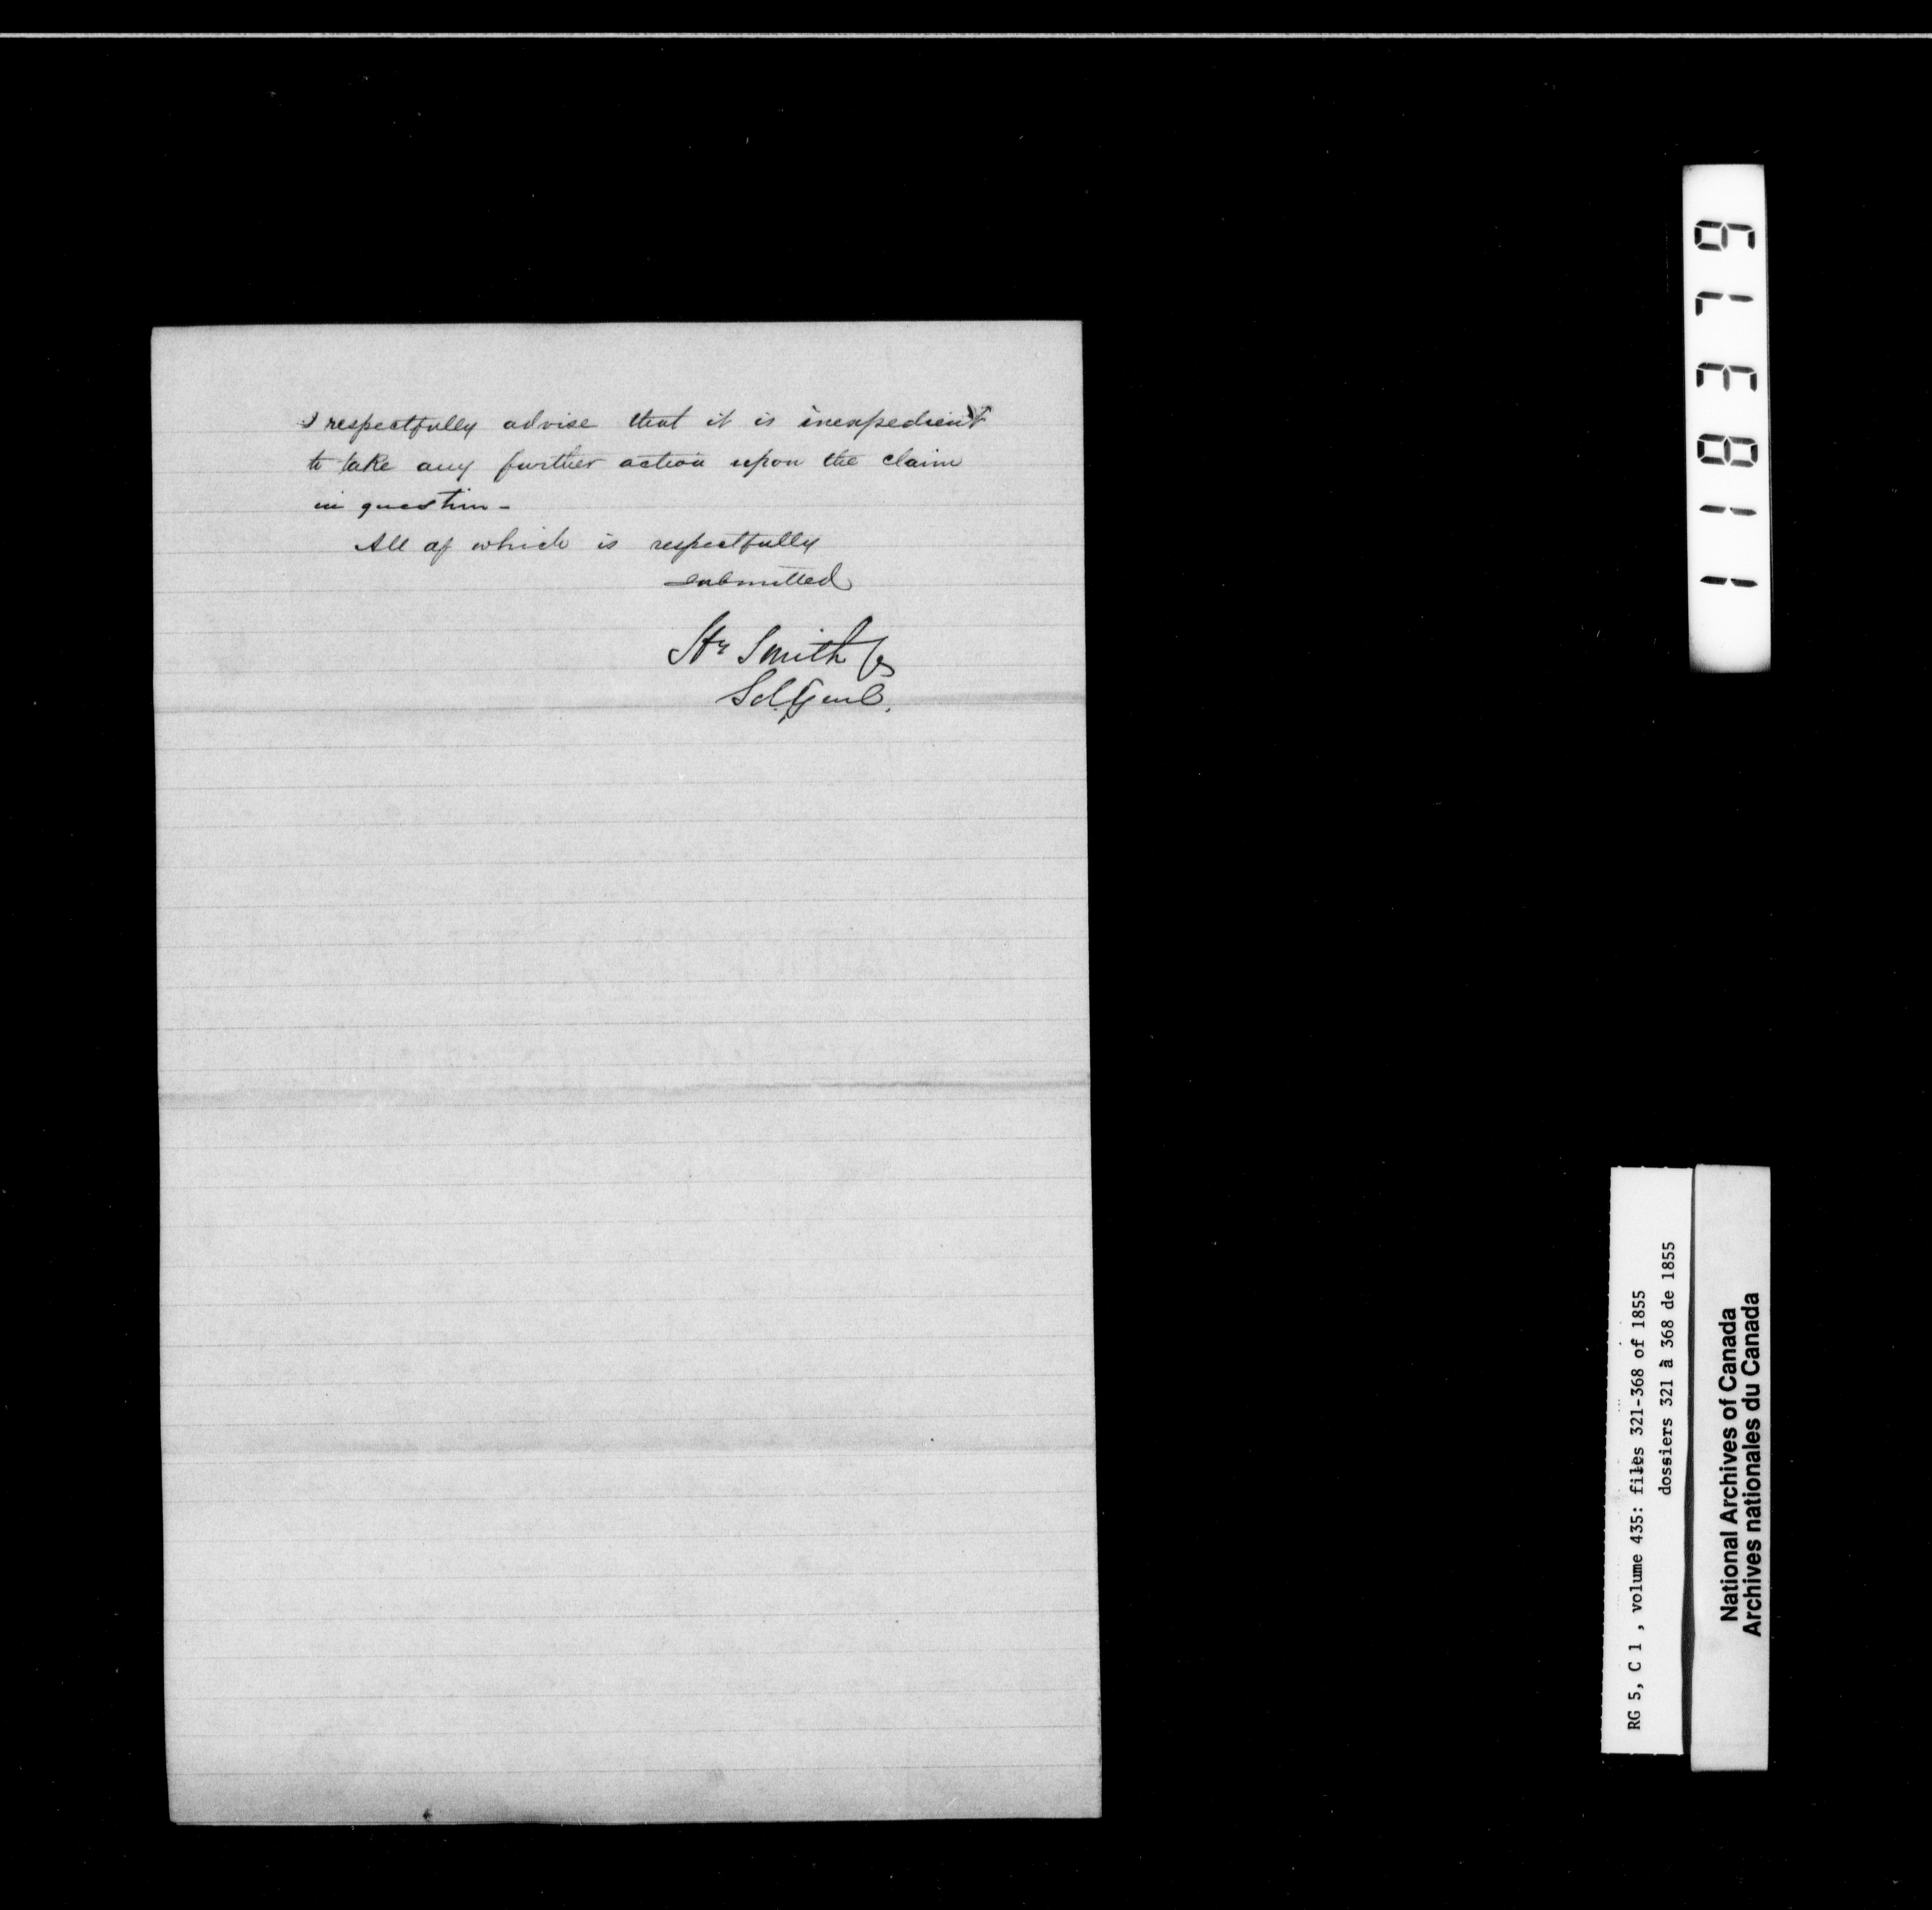 I respectfully advise that it is inexpedient
to take any further action upon the claim
in question -
All of which is respectfully
submitted
Hy Smith Jr
Sol. Genl.
118379
RG 5, C 1 , volume 435: files 321-368 of 1855
dossiers 321 à 368 de 1855
National Archives of Canada
Archives nationales du Canada